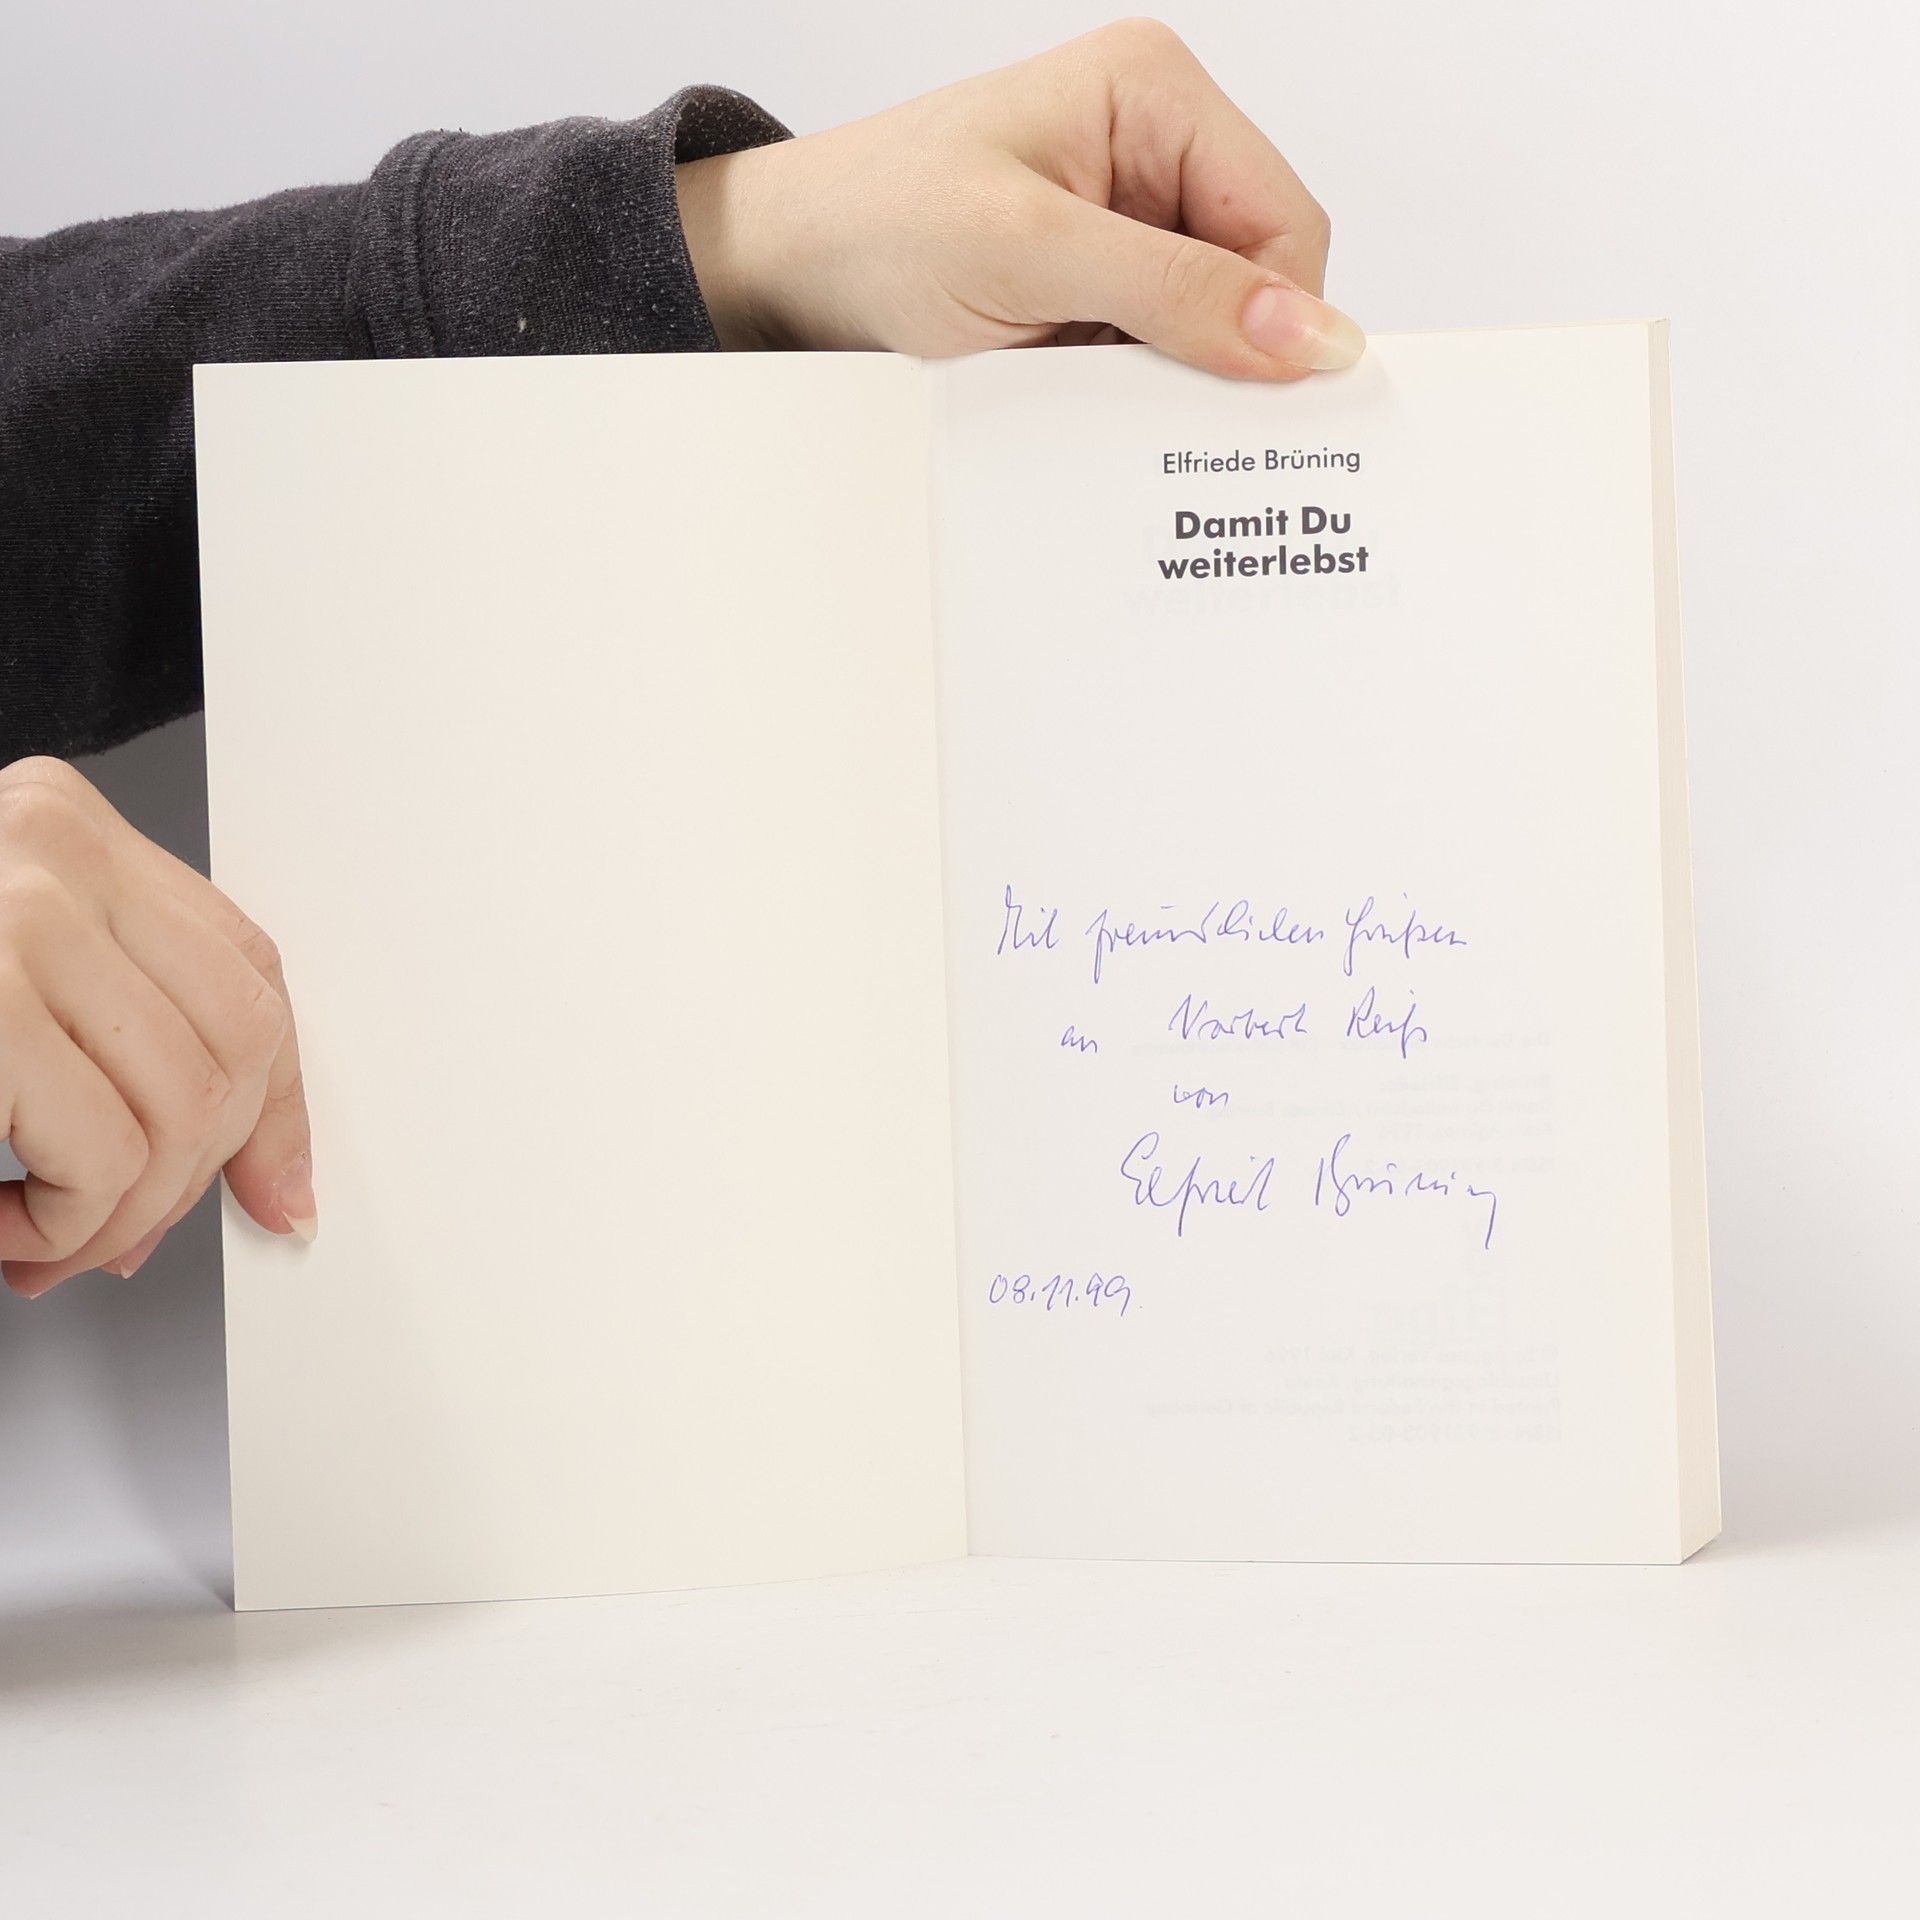 Elfriede Brüning
Damit Du
weiterlebst
Mit freundlichen Grüßen
an Norbert Reiß
von
Elfriede Brüning
08.11.99